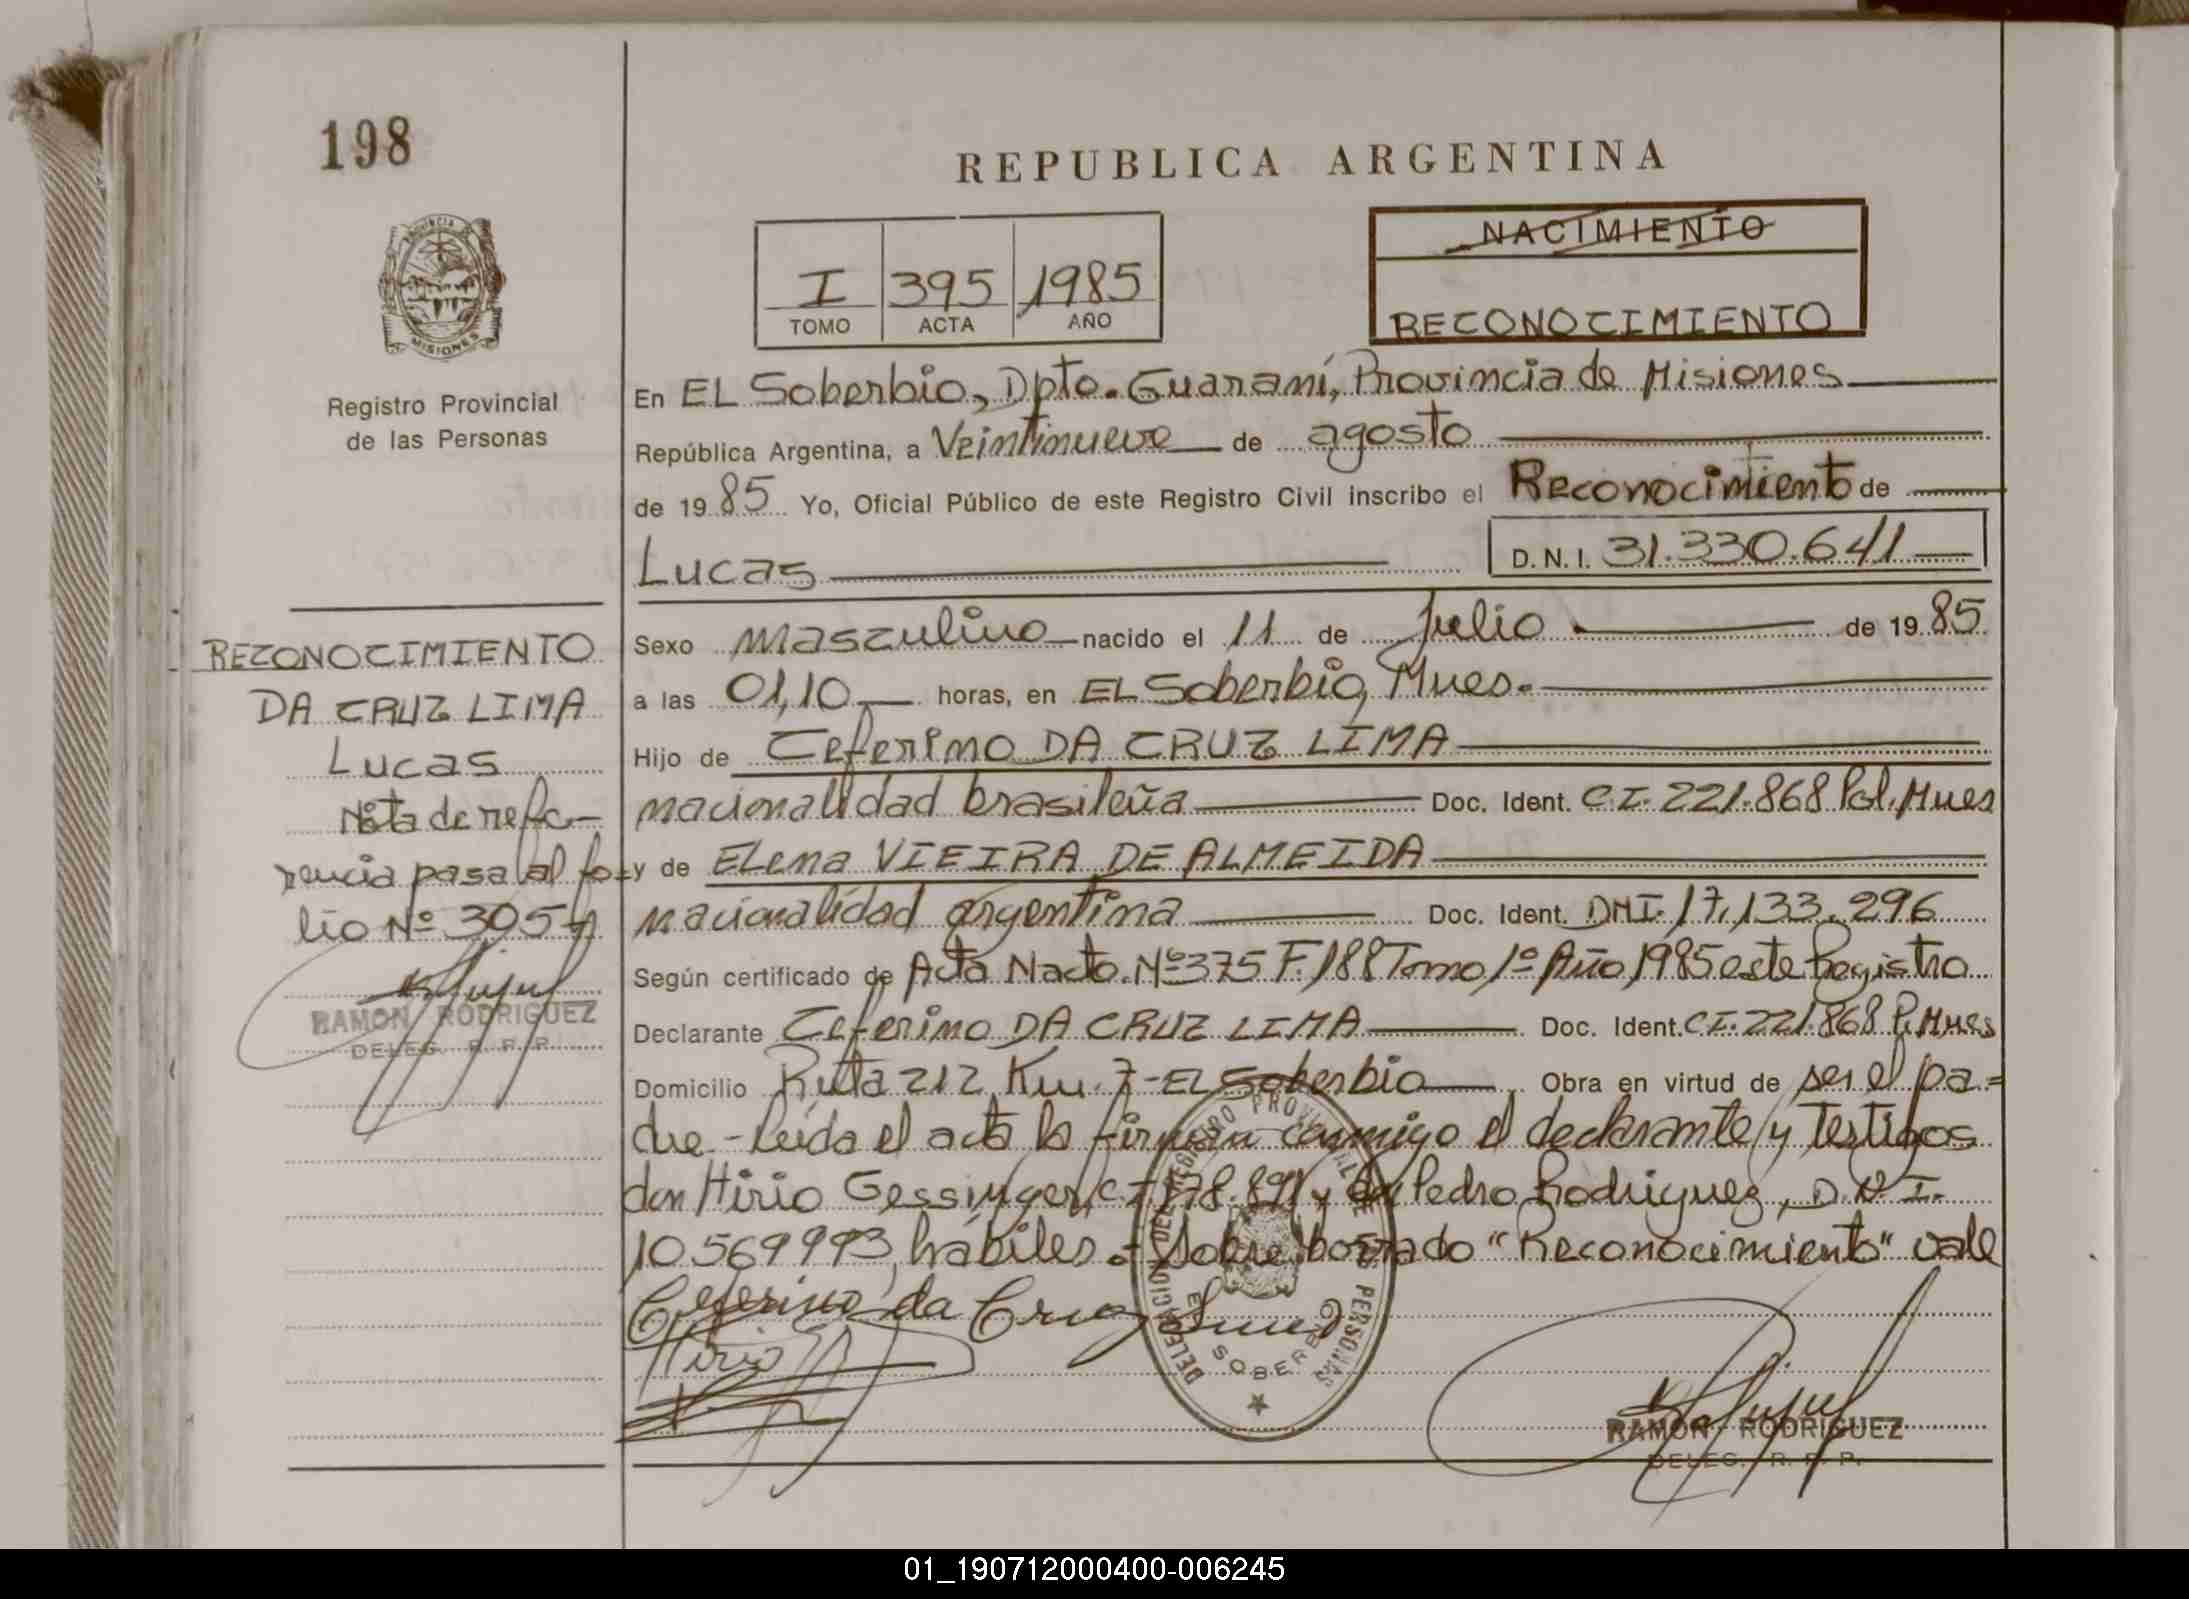 198
REPUBLICA ARGENTINA
PROVINCIA DE
MISIONES
Registro Provincial
de las Personas
I 395 1985
TOMO ACTA AÑO
NACIMIENTO
RECONOCIMIENTO
En EL Soberbio, Dpto. Guaraní, Provincia de Misiones
República Argentina, a Veintinueve de agosto
de 19 85 Yo, Oficial Público de este Registro Civil inscribo el Reconocimiento de
Lucas D.N.I. 31.330.641
Sexo masculino nacido el 11 de Julio de 19 85
a las 01,10 horas, en EL Soberbio, Mnes.
Hijo de Ceferino DA CRUZ LIMA
nacionalidad brasileña Doc. Ident. C.I. 221.868 Pol. Mnes
y de ELena VIEIRA DE ALMEIDA
nacionalidad argentina Doc. Ident. DNI. 17.133.296
Según certificado de Acta Nacto. Nº 375 F. 188 Tomo 1º Año 1985 este Registro
Declarante Ceferino DA CRUZ LIMA Doc. Ident. C.I. 221.868 P. Mnes
Domicilio Ruta 212 Km. 7 - EL Soberbio Obra en virtud de ser el pa=
dre.- Leída el acta la firman conmigo el declarante y testigos
don Hirio Gessinger, C.I. 178.891 y don Pedro Rodriguez, D.N.I.
10.569.993, hábiles.- Sobre borrado "Reconocimiento" vale
Ceferino da Cruz Lima
Hirio
DELEGACION DEL REGISTRO PROVINCIAL DE LAS PERSONAS
EL SOBERBIO
RAMON RODRIGUEZ
DELEG. R. P. P.
RECONOCIMIENTO
DA CRUZ LIMA
Lucas
Nota de refe-
rencia pasa al fo=
lio Nº 305
RAMON RODRIGUEZ
DELEG. R. P. P.
01_190712000400-006245